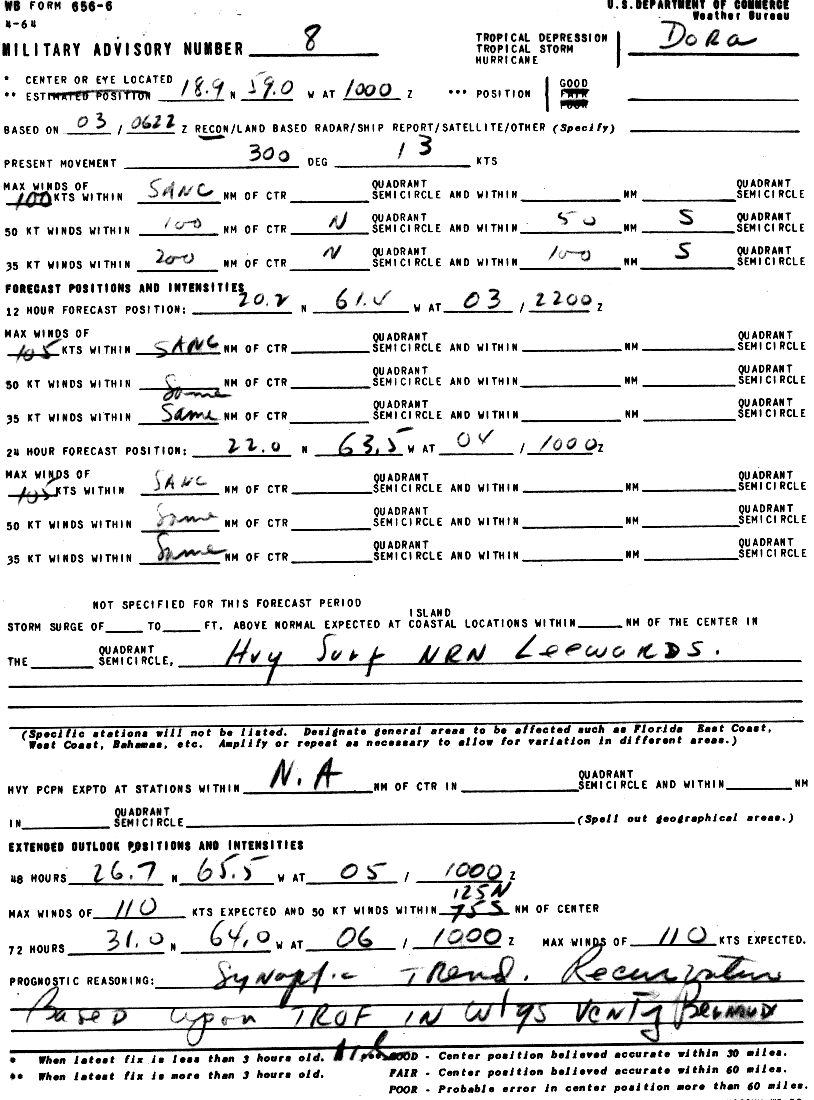 WB FORM 656-6 U.S. DEPARTMENT OF COMMERCE
4-64 Weather Bureau
MILITARY ADVISORY NUMBER 8 TROPICAL DEPRESSION Dora
TROPICAL STORM
HURRICANE
* CENTER OR EYE LOCATED
** ESTIMATED POSITION 18.9 N 59.0 W AT 1000 Z *** POSITION GOOD
FAIR
POOR
BASED ON 03 / 0622 Z RECON/LAND BASED RADAR/SHIP REPORT/SATELLITE/OTHER (Specify)
PRESENT MOVEMENT 300 DEG 13 KTS
MAX WINDS OF QUADRANT QUADRANT
100 KTS WITHIN NM OF CTR SEMICIRCLE AND WITHIN NM SEMICIRCLE
QUADRANT QUADRANT
50 KT WINDS WITHIN 100 NM OF CTR N SEMICIRCLE AND WITHIN 50 NM S SEMICIRCLE
QUADRANT QUADRANT
35 KT WINDS WITHIN 200 NM OF CTR N SEMICIRCLE AND WITHIN 100 NM S SEMICIRCLE
FORECAST POSITIONS AND INTENSITIES
12 HOUR FORECAST POSITION: 20.2 N W AT 03 / 2200 Z
MAX WINDS OF QUADRANT QUADRANT
105 KTS WITHIN NM OF CTR SEMICIRCLE AND WITHIN NM SEMICIRCLE
QUADRANT QUADRANT
50 KT WINDS WITHIN Same NM OF CTR SEMICIRCLE AND WITHIN NM SEMICIRCLE
QUADRANT QUADRANT
35 KT WINDS WITHIN Same NM OF CTR SEMICIRCLE AND WITHIN NM SEMICIRCLE
24 HOUR FORECAST POSITION: 22.0 N 63.5 W AT 04 / 1000 Z
MAX WINDS OF QUADRANT QUADRANT
105 KTS WITHIN NM OF CTR SEMICIRCLE AND WITHIN NM SEMICIRCLE
QUADRANT QUADRANT
50 KT WINDS WITHIN Same NM OF CTR SEMICIRCLE AND WITHIN NM SEMICIRCLE
QUADRANT QUADRANT
35 KT WINDS WITHIN Same NM OF CTR SEMICIRCLE AND WITHIN NM SEMICIRCLE
NOT SPECIFIED FOR THIS FORECAST PERIOD
ISLAND
STORM SURGE OF TO FT. ABOVE NORMAL EXPECTED AT COASTAL LOCATIONS WITHIN NM OF THE CENTER IN
QUADRANT
THE SEMICIRCLE, Hvy Surf NRN Leewards.
(Specific stations will not be listed. Designate general areas to be affected such as Florida East Coast,
West Coast, Bahamas, etc. Amplify or repeat as necessary to allow for variation in different areas.)
QUADRANT
HVY PCPN EXPTD AT STATIONS WITHIN N.A NM OF CTR IN SEMICIRCLE AND WITHIN NM
QUADRANT
IN SEMICIRCLE (Spell out geographical areas.)
EXTENDED OUTLOOK POSITIONS AND INTENSITIES
48 HOURS 26.7 N 65.5 W AT 05 / 1000 Z
125N
MAX WINDS OF 110 KTS EXPECTED AND 50 KT WINDS WITHIN 75S NM OF CENTER
72 HOURS 31.0 N 64.0 W AT 06 / 1000 Z MAX WINDS OF 110 KTS EXPECTED.
PROGNOSTIC REASONING: Synoptic Trend. Recurvature
Based upon TROF IN Wtys
* When latest fix is less than 3 hours old. GOOD - Center position believed accurate within 30 miles.
** When latest fix is more than 3 hours old. FAIR - Center position believed accurate within 60 miles.
POOR - Probable error in center position more than 60 miles.